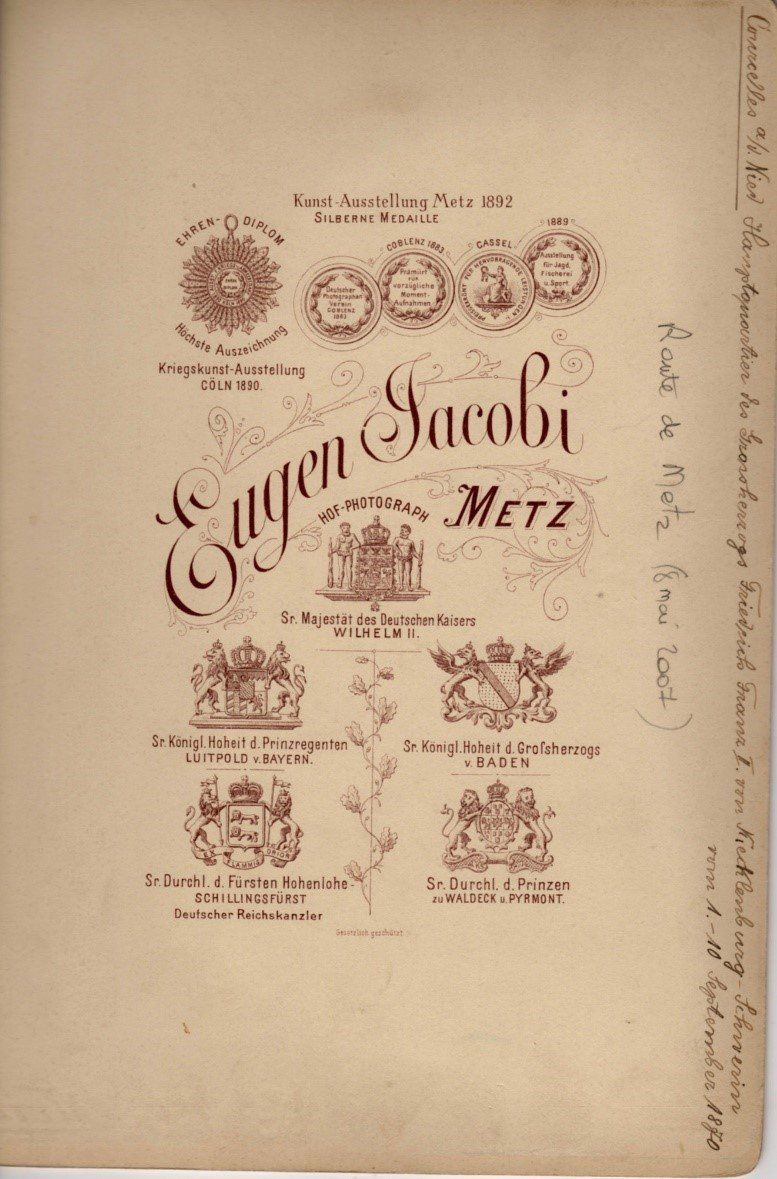 Kunst-Ausstellung Metz 1892
SILBERNE MEDAILLE
EHREN-DIPLOM
Höchste Auszeichnung
Kriegskunst-Ausstellung
CÖLN 1890.
Deutscher
Photographen
Verein
COBLENZ
1883
COBLENZ 1883
Prämiirt
FÜR
vorzügliche
Moment-
Aufnahmen
CASSEL
1889
Ausstellung
für Jagd,
Fischerei
u. Sport.
Eugen Jacobi
HOF-PHOTOGRAPH
METZ
Sr. Majestät des Deutschen Kaisers
WILHELM II.
Sr. Königl. Hoheit d. Prinzregenten
LUITPOLD v. BAYERN.
Sr. Königl. Hoheit d. Großherzogs
v. BADEN
EX FLAMMIS ORIOR
Sr. Durchl. d. Fürsten Hohenlohe-
SCHILLINGSFÜRST
Deutscher Reichskanzler
Sr. Durchl. d. Prinzen
zu WALDECK u. PYRMONT.
Gesetzlich geschützt
Courcelles a/d. Nied Hauptquartier des Grossherzogs Friedrich Franz I. von Mecklenburg-Schwerin
vom 1.-10 September 1870
Route de Metz (8 mai 2007)